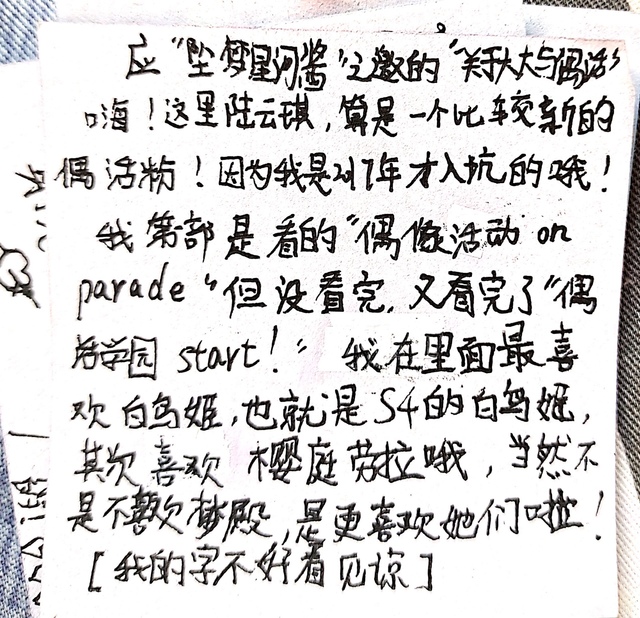 应“坠梦星河酱”之邀的“关于大大与偶活”
嗨！这里陆云琪，算是一个比较新的
偶活粉！因为我是2017年才入坑的哦！
我第部是看的“偶像活动 on
parade”但没看完，又看完了“偶
活学园 start！” 我在里面最喜
欢白鸟姬，也就是S4的白鸟姬，
其次喜欢 樱庭劳拉哦，当然不
是不喜欢梦殿，是更喜欢她们啦！
[我的字不好看见谅]